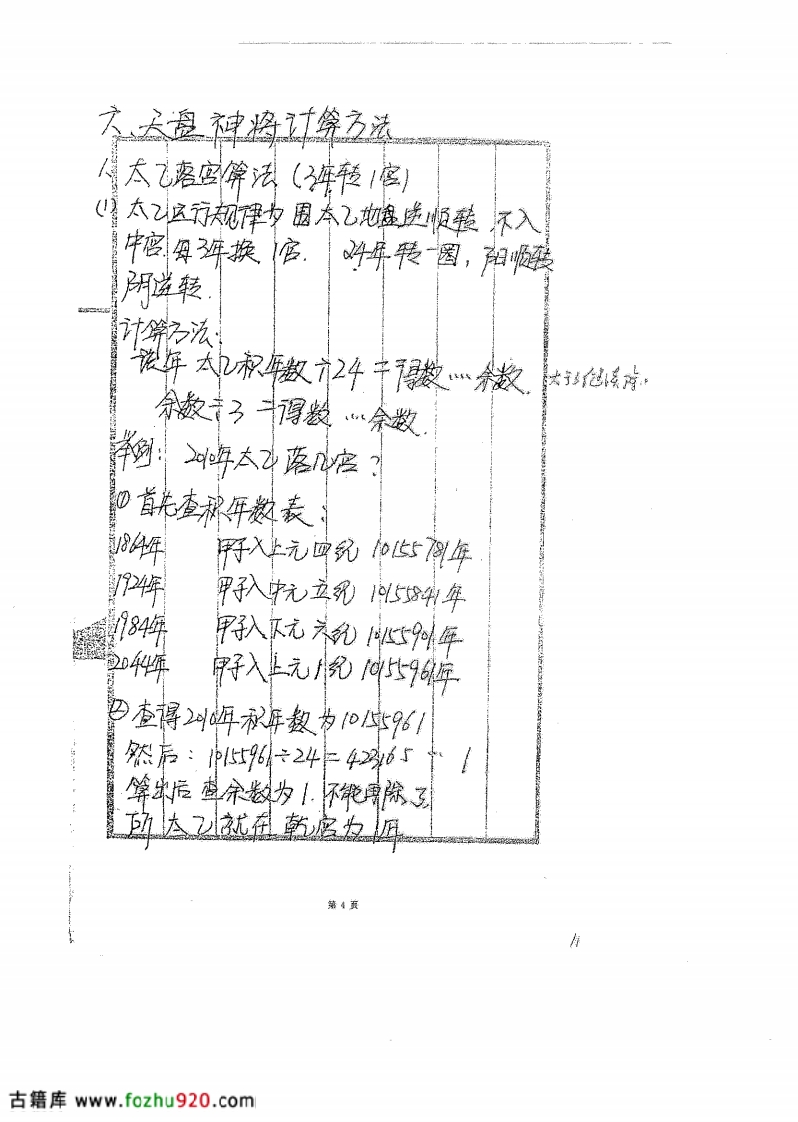 六、天盘神将计算方法
1、太乙落宫算法(3年转1宫)
(1)太乙运行规律为围太乙地盘逆顺转,不入
中宫.每3年换1宫. 24年转一圈,阳顺转
阴逆转.
计算方法:
该年太乙积年数÷24=得数……余数.大于3
余数÷3=得数……余数.
举例:2010年太乙落几宫?
①首先查积年数表:
1864年 甲子入上元四纪10155781年
1924年 甲子入中元五纪10155841年
1984年 甲子入下元六纪10155901年
2044年 甲子入上元1纪10155961年
②查得2010年积年数为10155961
然后:10155961÷24=423165…1
算出后查余数为1.不能再除了
所太乙就在乾宫为1年
第 4 页
11
古籍库 www.fozhu920.com